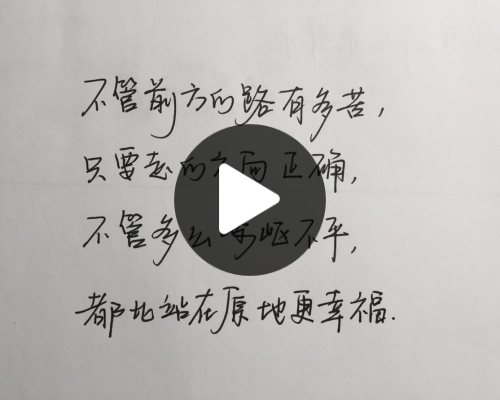 不管前方的路有多苦,
只要走的方向正确,
不管多么崎岖不平,
都比站在原地更幸福.